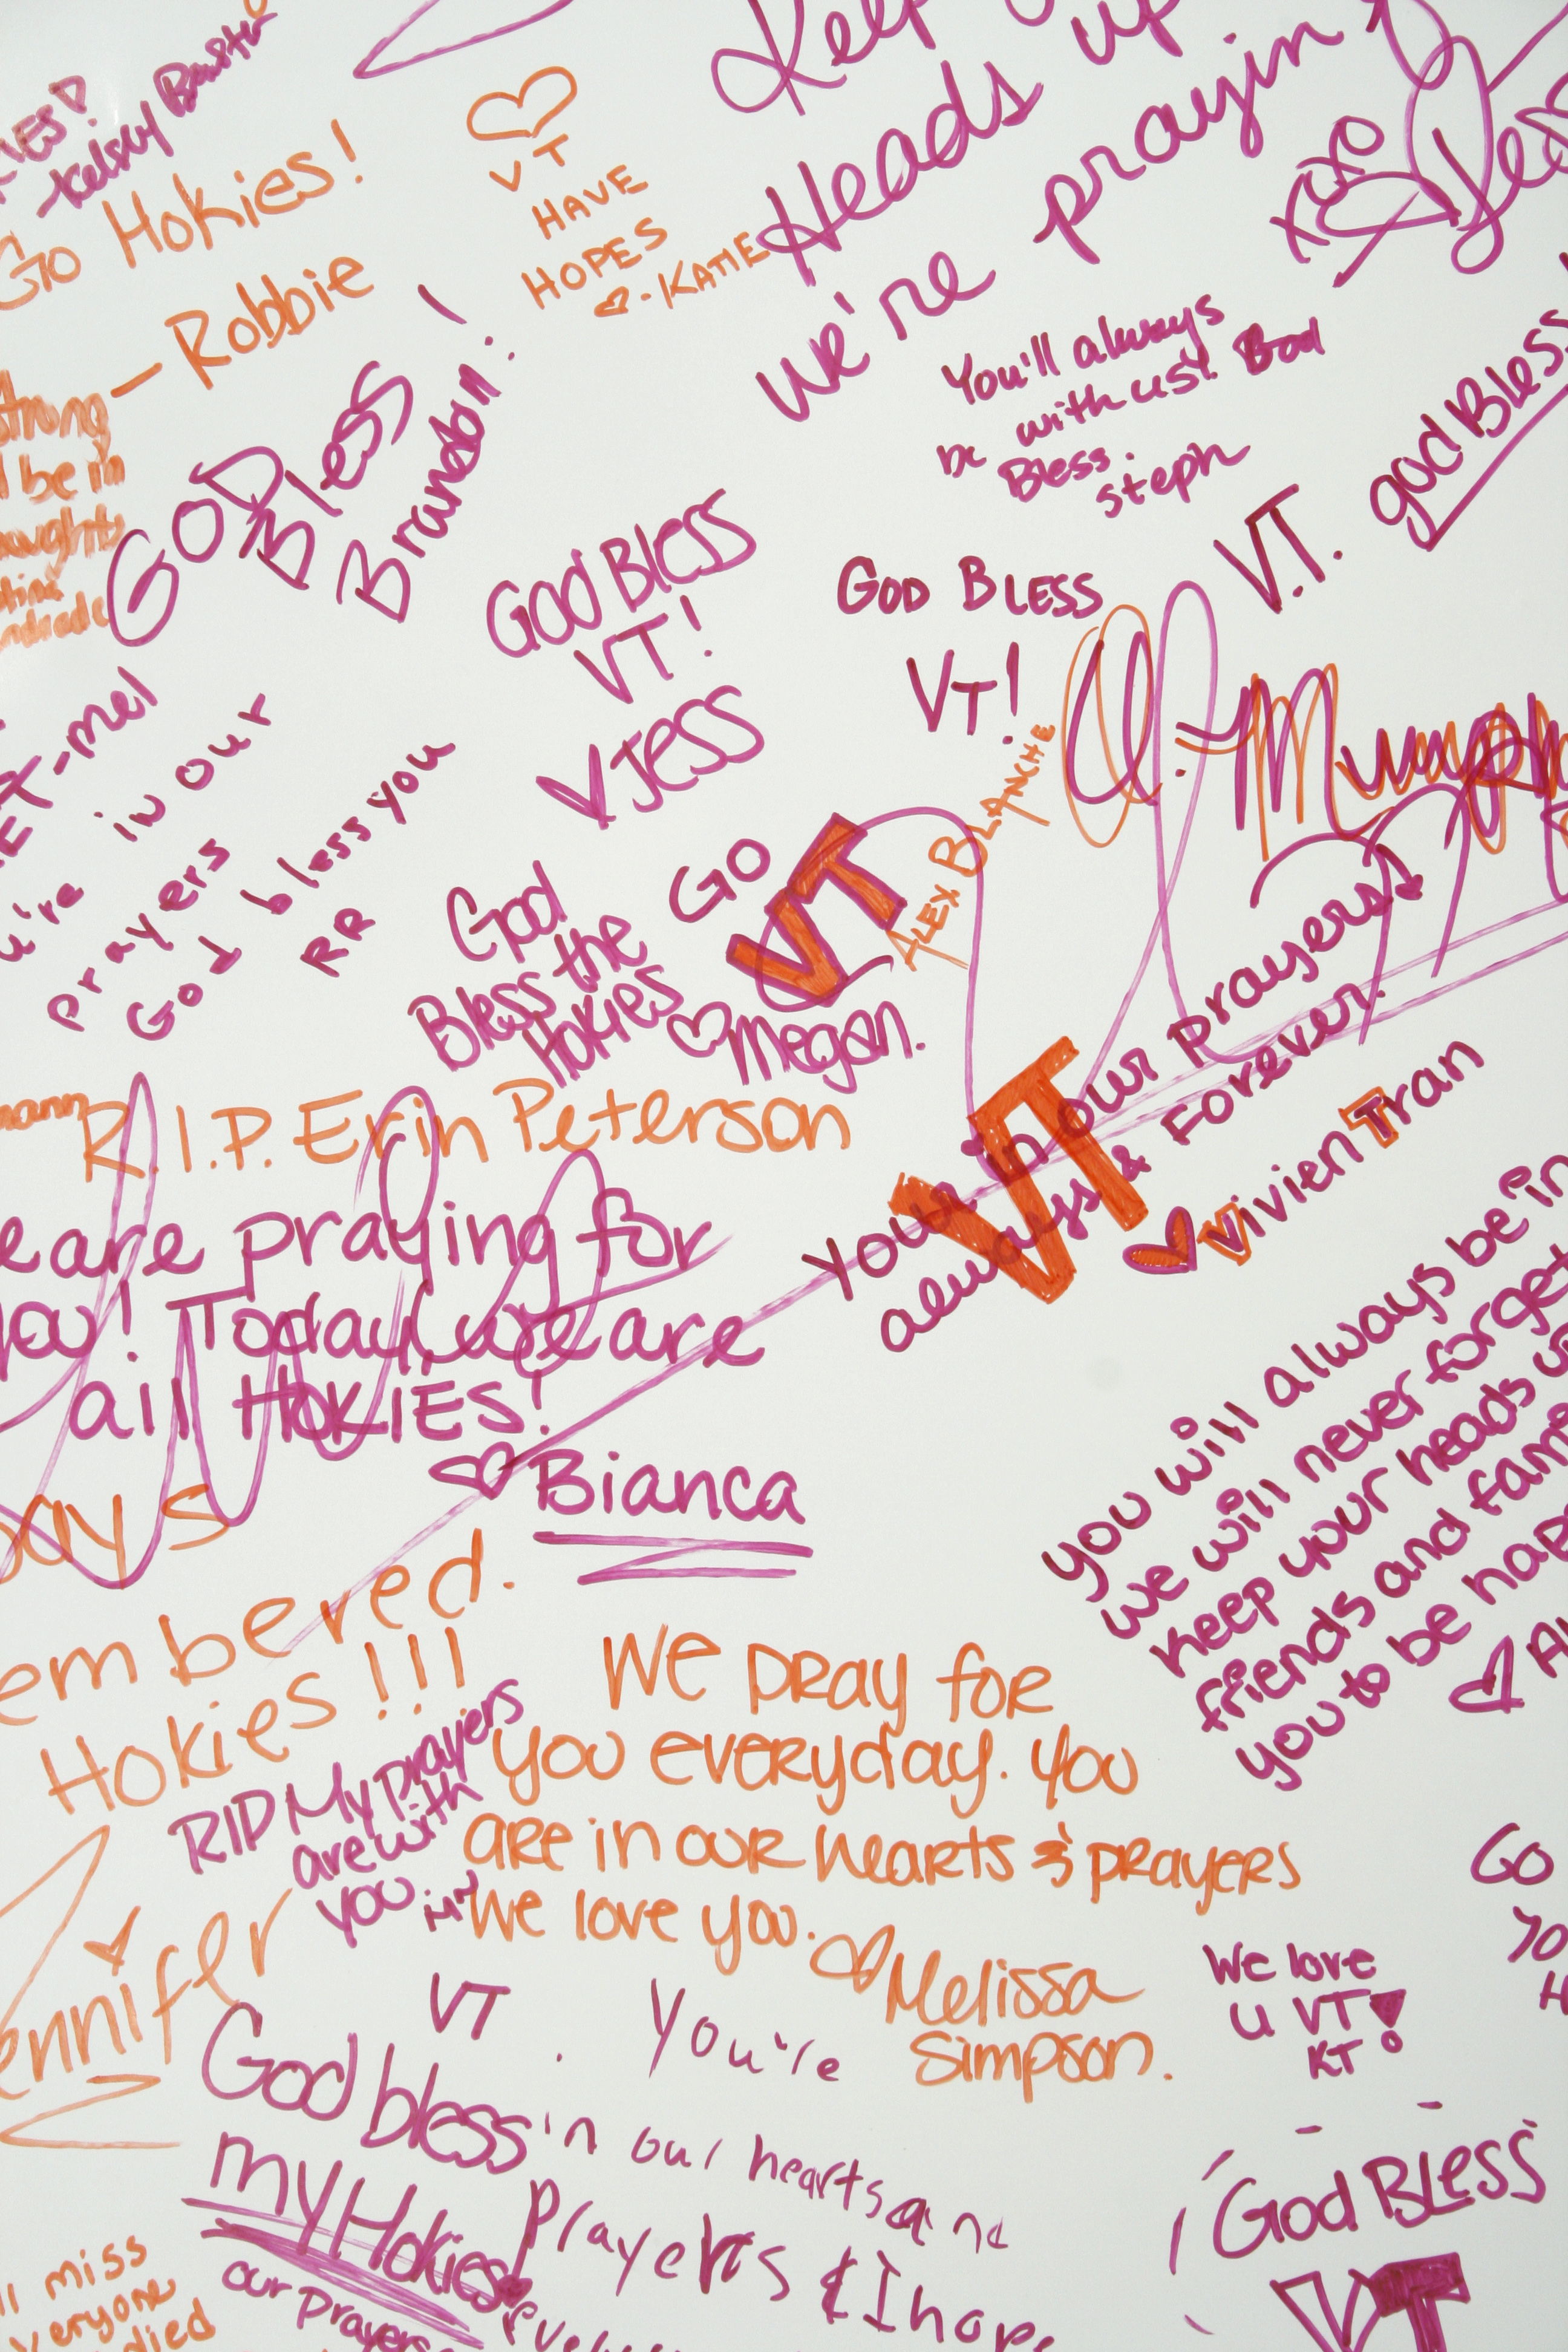 Kelsey
Go Hokies!
— Robbie
VT
HAVE
HOPES
-KATIE
Keep
Heads up
We're prayin
xoxo
You'll always
be with us! God
Bless.
Steph
God Bless
V.T.
strong
be in
GOD
Bless
Brandon!
God Bless
VT!
Jess
GOD BLESS
VT!
ALEX BLANCHE
-mel
in our
prayers
God bless you
RR
God
Bless the
Hokies
GO
VT
Megan.
R.I.P. Erin Peterson
Your in our prayers
always & Forever.
VT
Vivien Tran
are praying for
you! Today we are
all HOKIES!
Bianca
you will always be in
we will never forget
keep your heads
friends and
you to be
embered.
Hokies!!!
RIP My prayers
are with
you
We pray for
you everyday. you
are in our hearts & prayers
We love you.
Melissa
Simpson.
ennifer
We love
U VT!
KT
Go
VT
God bless
my Hokies
our prayers
You're
in our hearts and
prayers & I hope
miss
everyone
died
God Bless
VT